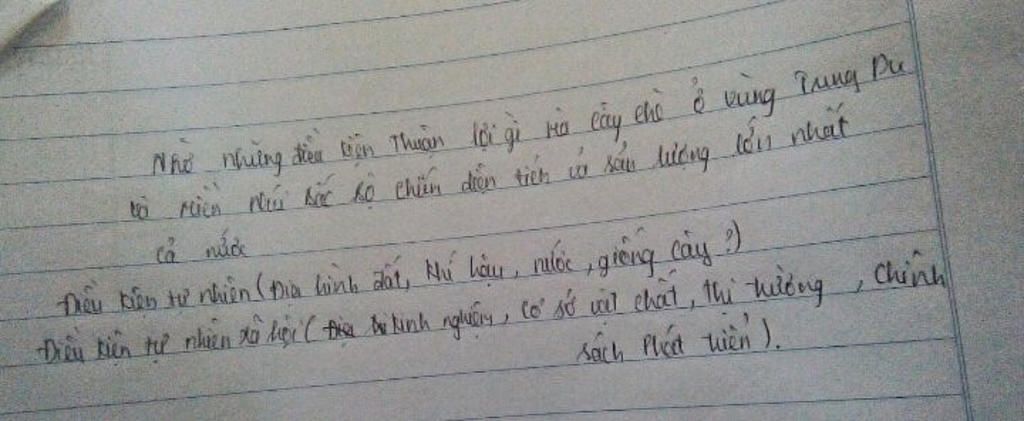 Nhờ những điều kiện Thuận lợi gì mà cây chè ở vùng Trung Du
và Miền Núi Bắc Bộ chiếm diện tích và sản lượng lớn nhất
cả nước
Điều kiện tự nhiên (Địa hình đất, khí hậu, nước, giống cây?)
Điều kiện tự nhiên xã hội (kinh nghiệm, cơ sở vật chất, thị trường, Chính
sách Phát triển).